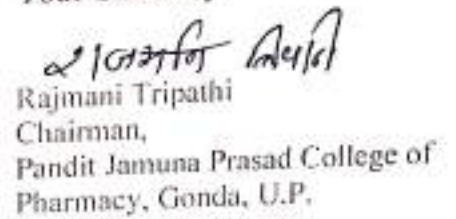 राजमनि त्रिपाठी
Rajmani Tripathi
Chairman,
Pandit Jamuna Prasad College of
Pharmacy, Gonda, U.P.